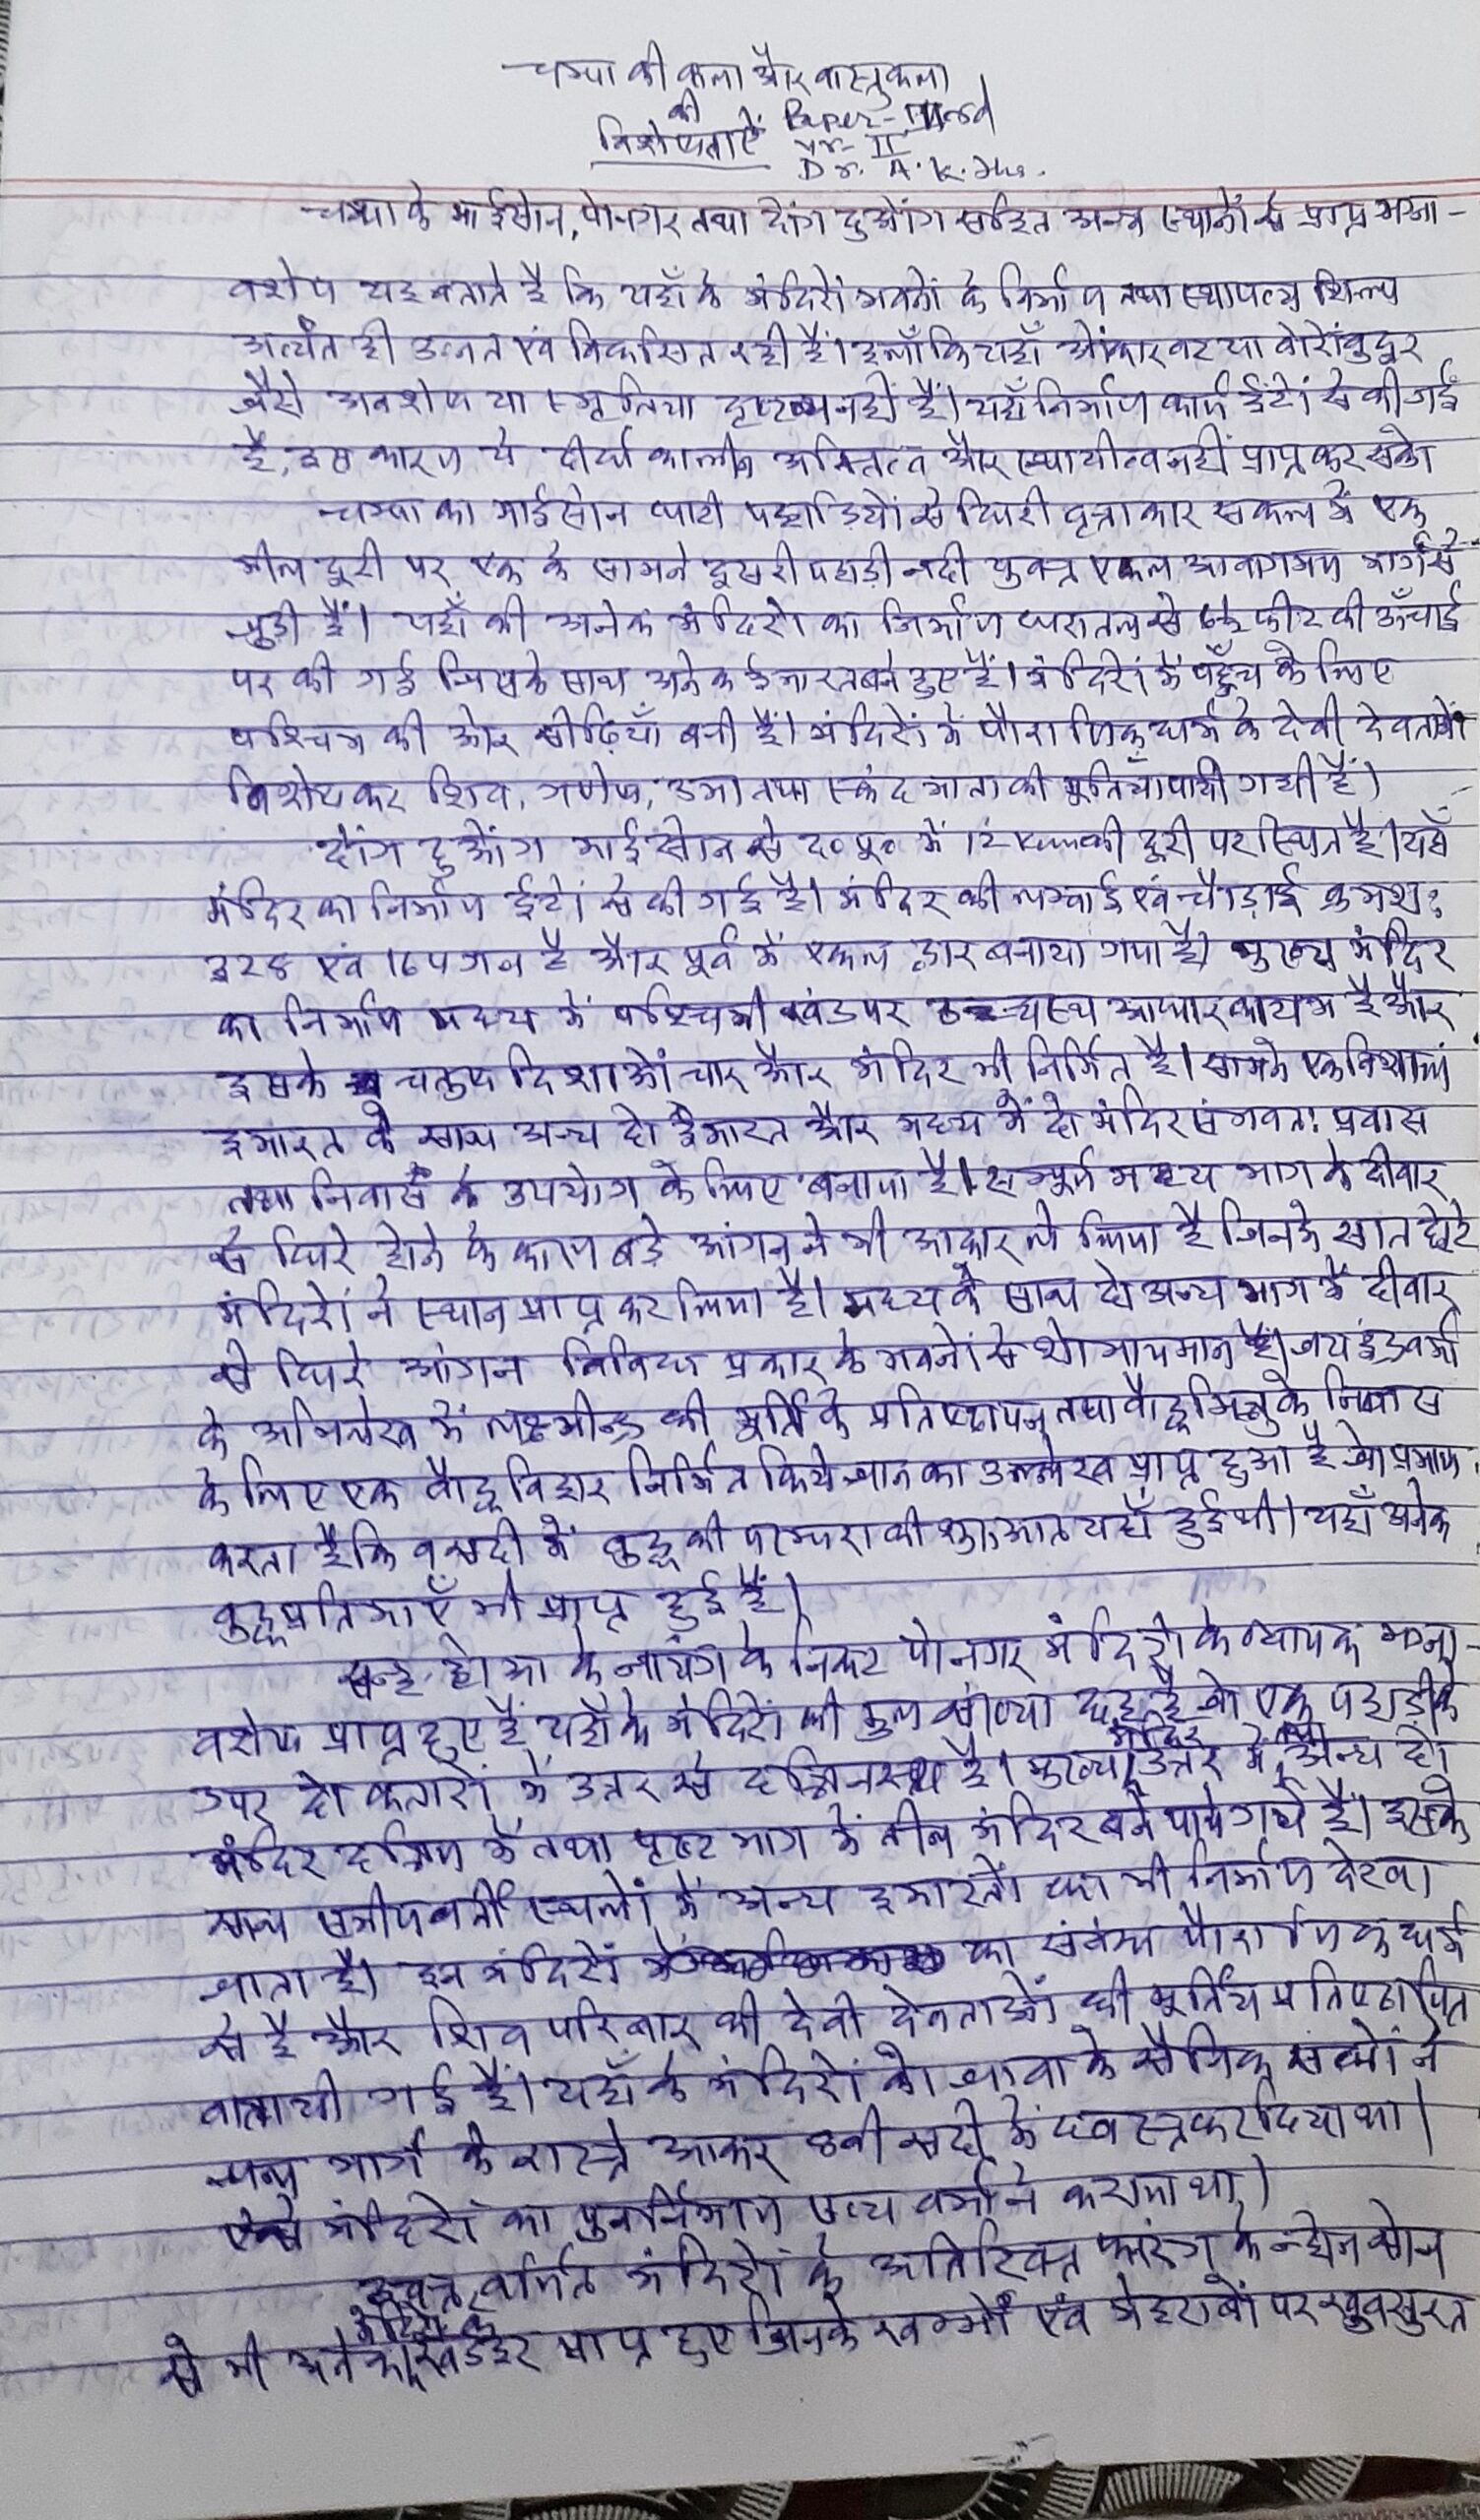 चम्पा की कला और वास्तुकला
की
विशेषताएँ Paper-
yr- II
Dr. A.K. Jha.
चम्पा के माईसोन, पोनगर तथा दोंग दुओंग सहित अन्य स्थानों से प्राप्त भग्ना-
वशेष यह बताते है कि यहाँ के मंदिरों भवनों के निर्माण तथा स्थापत्य शिल्प
अत्यंत ही उन्नत एवं विकसित रही हैं। हलाँकि यहाँ ओंकारवट या वोरोवुदुर
जैसे अवशेष या स्मृतिया दृष्टव्य नहीं हैं। यहाँ निर्माण कार्य ईंटों से की गई
है, इस कारण ये दीर्घ कालीन अस्तित्व और स्थायीत्व नहीं प्राप्त कर सके।
चम्पा का माईसोन घाटी पहाडियों से घिरी वृत्ताकार सकल में एक
मील दूरी पर एक के सामने दुसरी पहाड़ी नदी युक्त एकल आवागमण मार्ग से
जुडी हैं। यहाँ की अनेक मंदिरो का निर्माण धरातल से फीट की ऊँचाई
पर की गई जिसके साथ अनेक ईमारत बने हुए हैं। मंदिरों में पहुँच के लिए
पश्चिम की ओर सीढ़ियाँ बनी हैं। मंदिरों में पौराणिक धर्म के देवी देवताओं
विशेषकर शिव, गणेश, उमा तथा स्कंद माता की मूर्तियाँ पायी गयी हैं।
दोंग दुओंग माईसोन से द० पू० में 12 Km की दूरी पर स्थित है। यहाँ
मंदिर का निर्माण ईंटों से की गई है। मंदिर की लम्बाई एवं चौड़ाई क्रमश:
328 एवं 164 गज है और पूर्व में एकल द्वार बनाया गया है। मुख्य मंदिर
का निर्माण मध्य में पश्चिमी खंड पर उच्चस्थ आधार कायम है और
इसके चतुष दिशाओं चार और मंदिर भी निर्मित है। सामने एक विशाल
इमारत के साथ अन्य दो ईमारत और मध्य में दो मंदिर संभवत: प्रवास
तथा निवास के उपयोग के लिए बनाया है। सम्पूर्ण मध्य भाग के दीवार
से घिरे होने के कारण बडे आंगन ने भी आकार ले लिया है जिनके सात छोटे
मंदिरों ने स्थान प्राप्त कर लिया है। मध्य के साथ दो अन्य भाग में दीवार
से घिरे आंगन विविध प्रकार के भवनों से शोभायमान हैं। जय इंद्रवर्मा
के अभिलेख में लक्ष्मीन्द्र की मूर्ति के प्रतिष्ठापन तथा बौद्ध भिक्षु के निवास
के लिए एक बौद्ध विहार निर्मित किये जाने का उल्लेख प्राप्त हुआ है जो प्रमाण
करता है कि सदी में बुद्ध की परम्परा की शुरुआत यहाँ हुई थी। यहाँ अनेक
बुद्ध प्रतिमाएँ भी प्राप्त हुई हैं।
होआ के नायंग के निकट पोनगर मंदिरों के व्यापक भग्ना-
वशेष प्राप्त हुए हैं यहाँ के मंदिरों की कुल संख्या छह है जो एक पहाडी के
उपर दो कतारों में उत्तर से दक्षिन है। मुख्य मंदिर उत्तर में तथा अन्य दो
मंदिर दक्षिण में तथा पृष्ट भाग में तीन मंदिर बने पाये गये हैं। इसके
साथ समीपवर्ती स्थलों में अन्य इमारतों का भी निर्माण देखा
जाता है। इन मंदिरों का संबंध पौराणिक धर्म
से है और शिव परिवार की देवी देवताओं की मूर्तिय प्रतिष्ठापित
बतायी गई हैं। यहाँ के मंदिरों को जावा के सैनिक ने
मार्ग के रास्ते आकर 8वी सदी में ध्वस्त कर दिया था।
मंदिरों का पुनर्निमाण सत्य वर्मा ने कराया था।
उक्त वर्णित मंदिरों के अतिरिक्त फनरंग के
से भी अनेक मंदिरों के खंडहर प्राप्त हुए जिनके खम्भों एवं मेहराबों पर खुबसुरत